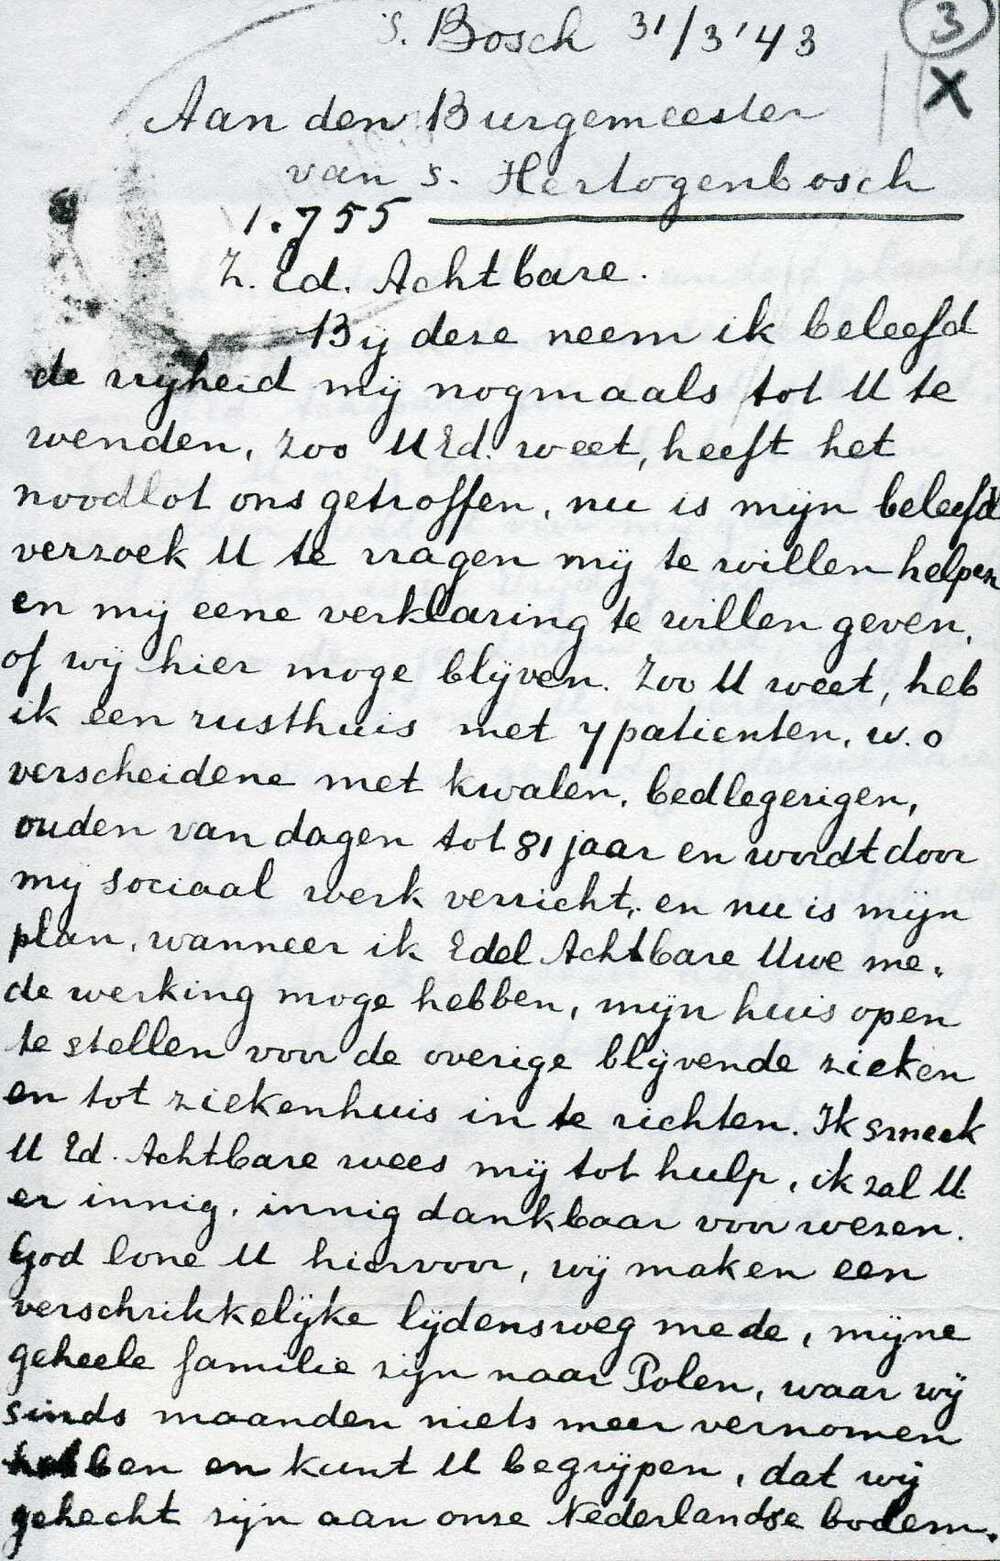 3
X
's. Bosch 31/3 '43
Aan den Burgemeester
van s. Hertogenbosch
1.755
Z. Ed. Achtbare.
Bij deze neem ik beleefd
de vrijheid mij nogmaals tot U te
wenden, zoo U Ed. weet, heeft het
noodlot ons getroffen, nu is mijn beleefd
verzoek U te vragen mij te willen helpen
en mij eene verklaring te willen geven,
of wij hier moge blijven. Zoo U weet, heb
ik een rusthuis met 7 patienten, w.o
verscheidene met kwalen, bedlegerigen,
ouden van dagen tot 81 jaar en wordt door
mij sociaal werk verricht, en nu is mijn
plan, wanneer ik Edel Achtbare Uwe me-
de werking moge hebben, mijn huis open
te stellen voor de overige blijvende zieken
en tot ziekenhuis in te richten. Ik smeek
U Ed. Achtbare wees mij tot hulp, ik zal U
er innig, innig dankbaar voor wezen.
God lone U hiervoor, wij maken een
verschrikkelijke lijdensweg mede, mijne
geheele familie zijn naar Polen, waar wij
sinds maanden niets meer vernomen
hebben en kunt U begrijpen, dat wij
gehecht zijn aan onze Nederlandse bodem.